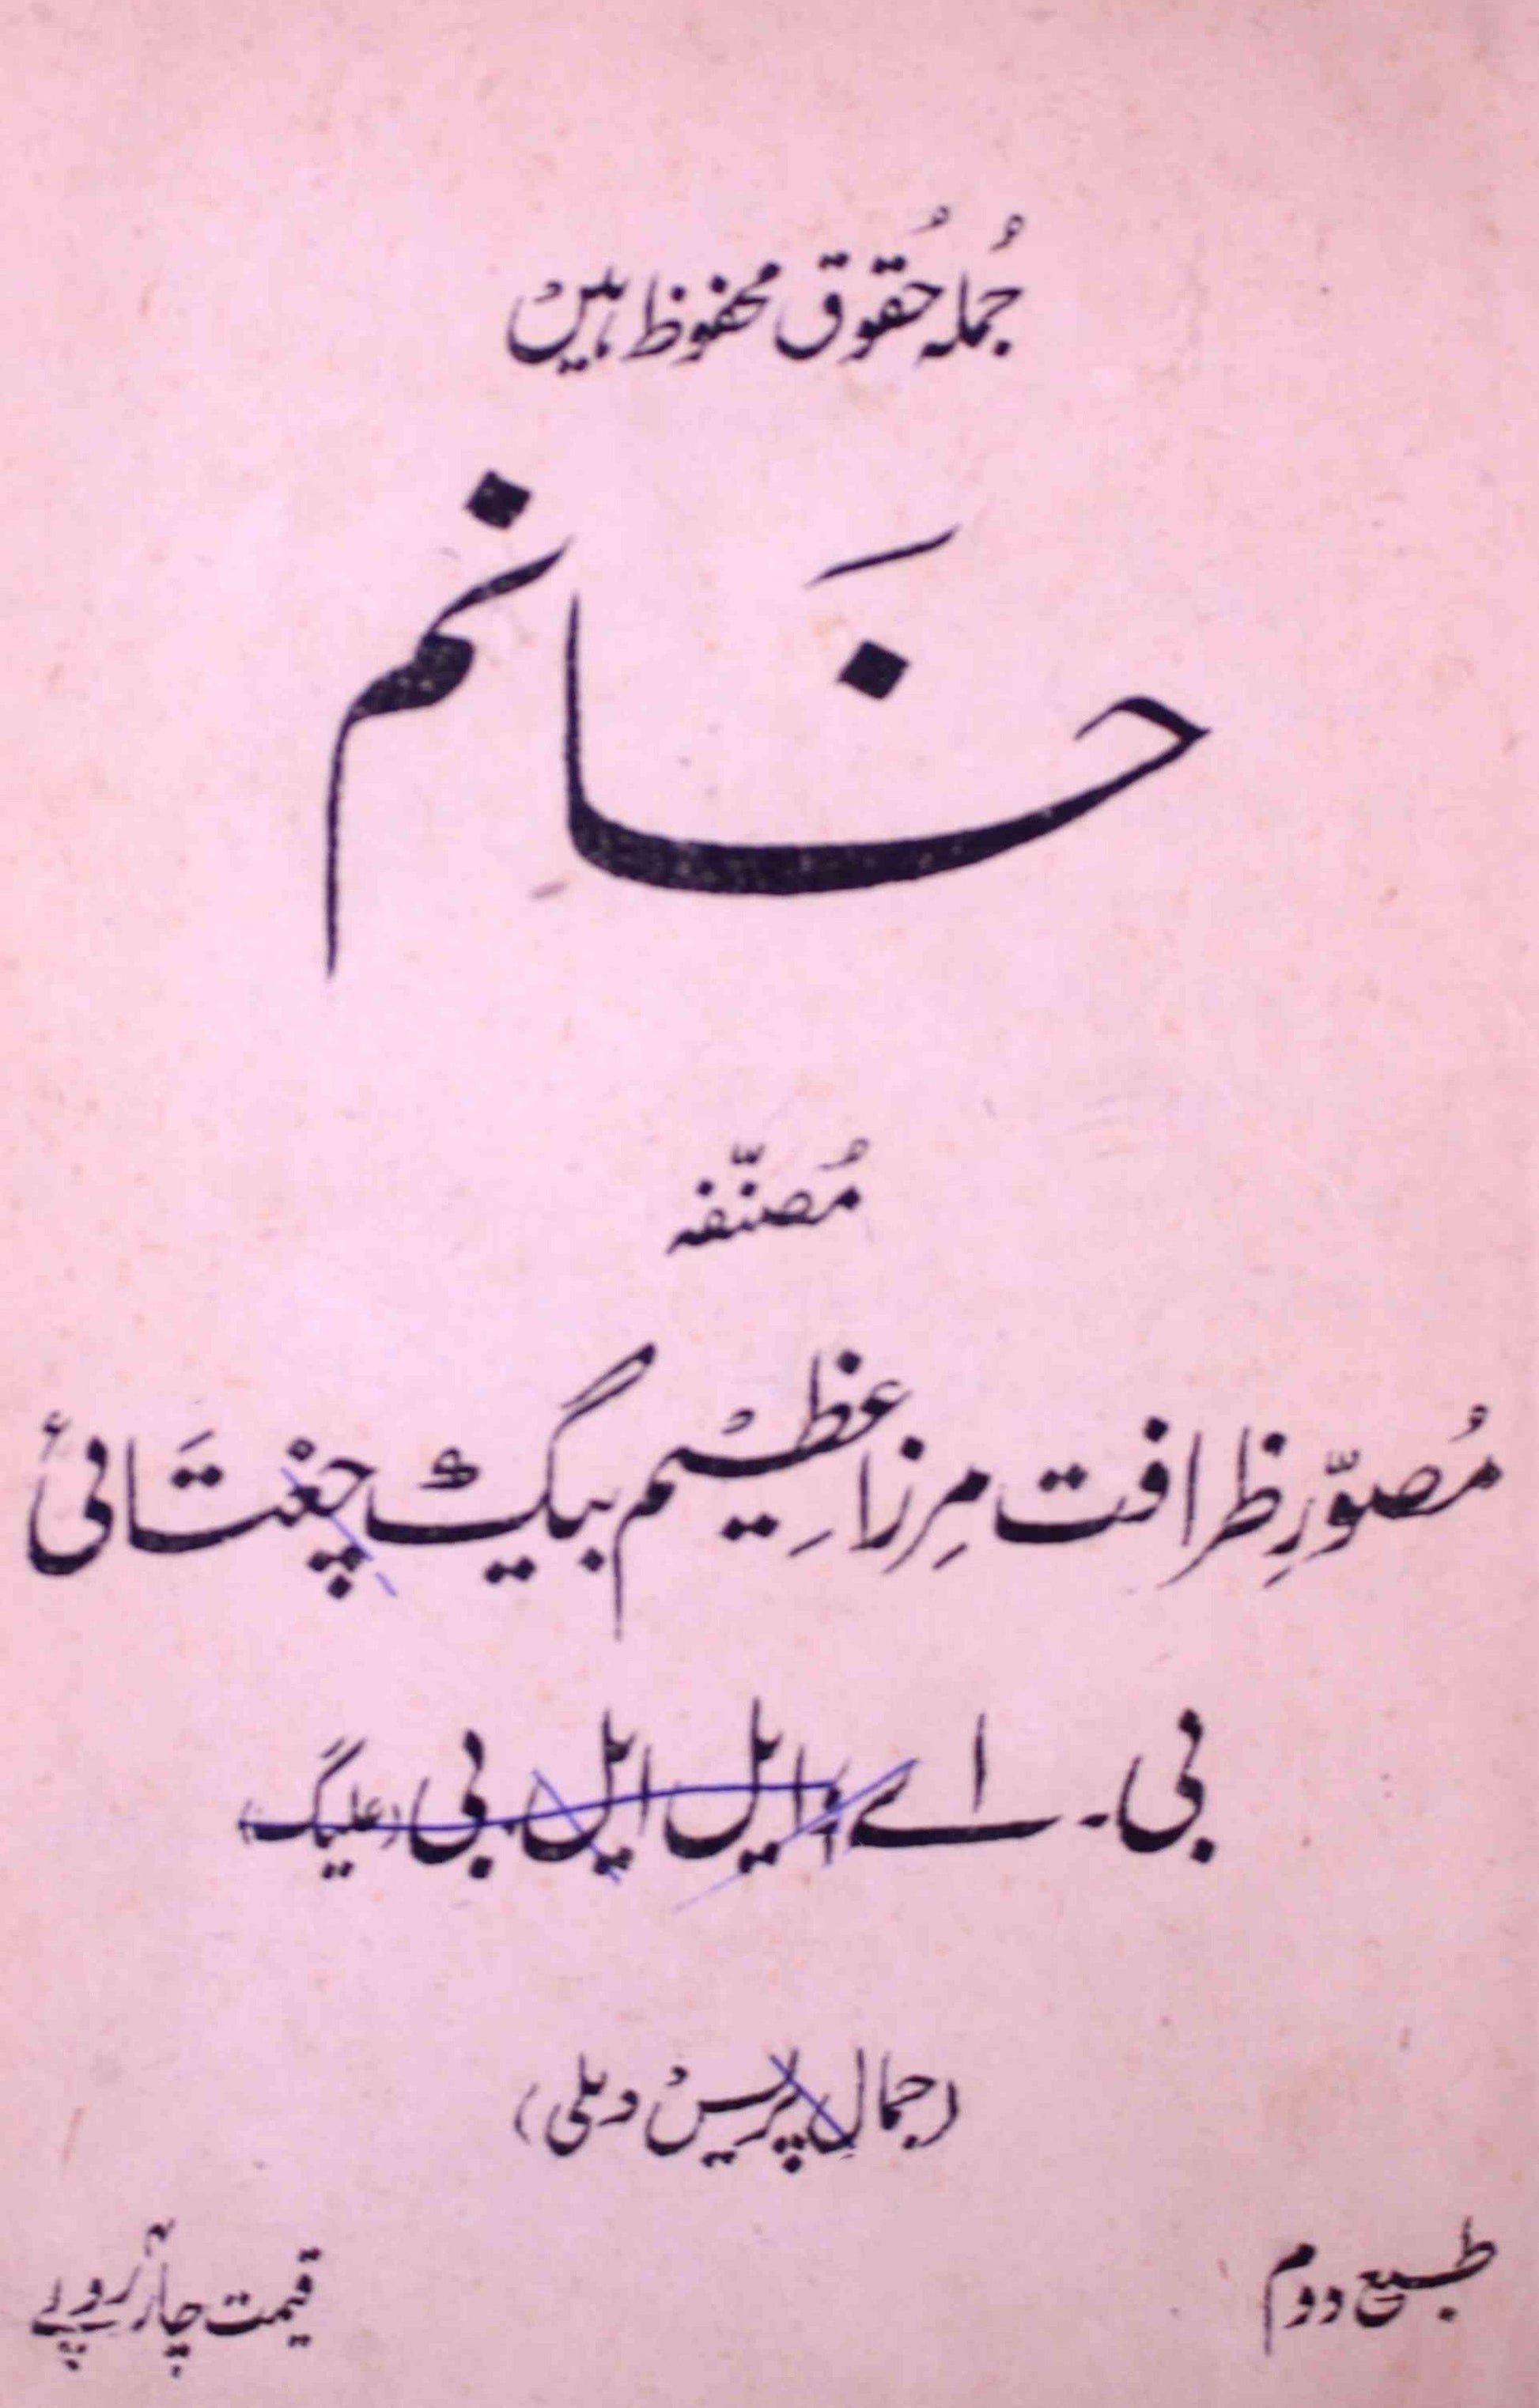 جُملہ حُقوق محفوظ ہیں
خَانم
مُصنّفہ
مُصوّرِ ظرافت مِرزا عظِیم بیگ چغتَائی
بی۔ اے، ایل ایل بی (علیگ)
(جمال پریس دہلی)
طبع دوم
قیمت چار روپے